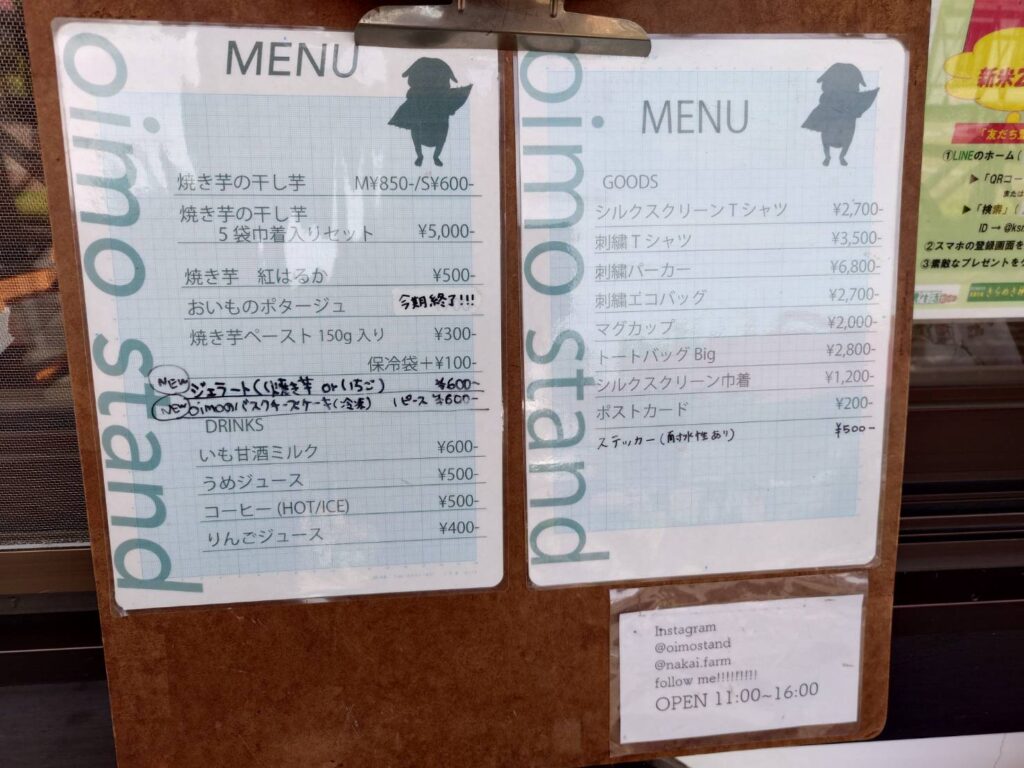 oimo stand
MENU
焼き芋の干し芋 M¥850-/S¥600-
焼き芋の干し芋
5袋巾着入りセット ¥5,000-
焼き芋 紅はるか ¥500-
おいものポタージュ 今期終了!!!
焼き芋ペースト 150g 入り ¥300-
保冷袋+¥100-
NEW ジェラート((焼き芋 or いちご) ¥600-
NEW oimoのバスクチーズケーキ(冷凍) 1ピース ¥600-
DRINKS
いも甘酒ミルク ¥600-
うめジュース ¥500-
コーヒー (HOT/ICE) ¥500-
りんごジュース ¥400-
oimo stand
MENU
GOODS
シルクスクリーンTシャツ ¥2,700-
刺繍Tシャツ ¥3,500-
刺繍パーカー ¥6,800-
刺繍エコバッグ ¥2,700-
マグカップ ¥2,000-
トートバッグ Big ¥2,800-
シルクスクリーン巾着 ¥1,200-
ポストカード ¥200-
ステッカー(耐水性あり) ¥500-
Instagram
@oimostand
@nakai.farm
follow me!!!!!!!!!
OPEN 11:00~16:00
新米2
「友だち
①LINEのホーム(
▶「QRコー
または
▶「検索」(
ID → @ksr
②スマホの登録画面を
③素敵なプレゼントをク